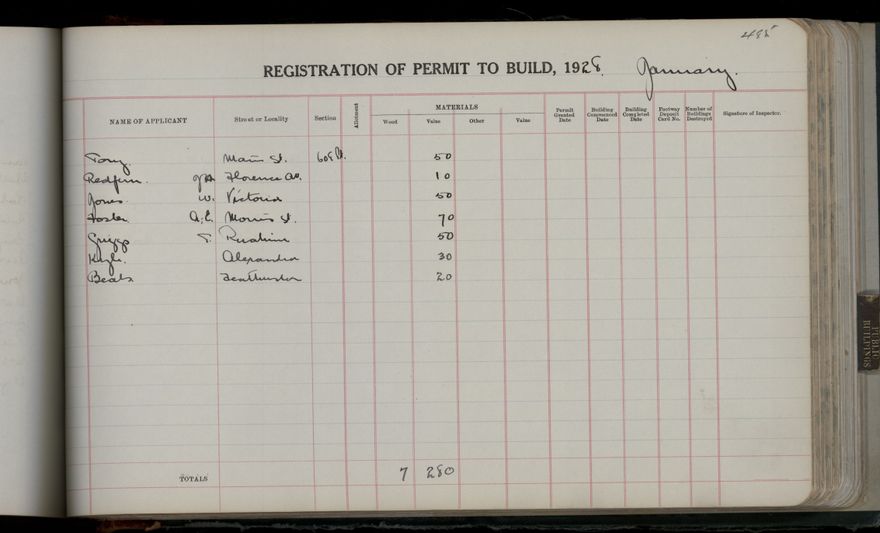 485
REGISTRATION OF PERMIT TO BUILD, 1928. January.
NAME OF APPLICANT Street or Locality Section Allotment MATERIALS Wood Value Other Value Permit Granted Date Building Commenced Date Building Completed Date Footway Deposit Card No. Number of Buildings Destroyed Signature of Inspector.
Main St. 50
Redfern. Florence Av. 10
Jones W. Victoria 50
Foster A.E. Morris St. 70
Griggs T. Ruahine 50
Alexandra 30
Beals Featherston 20
TOTALS 7 280
PUBLIC BUILDINGS